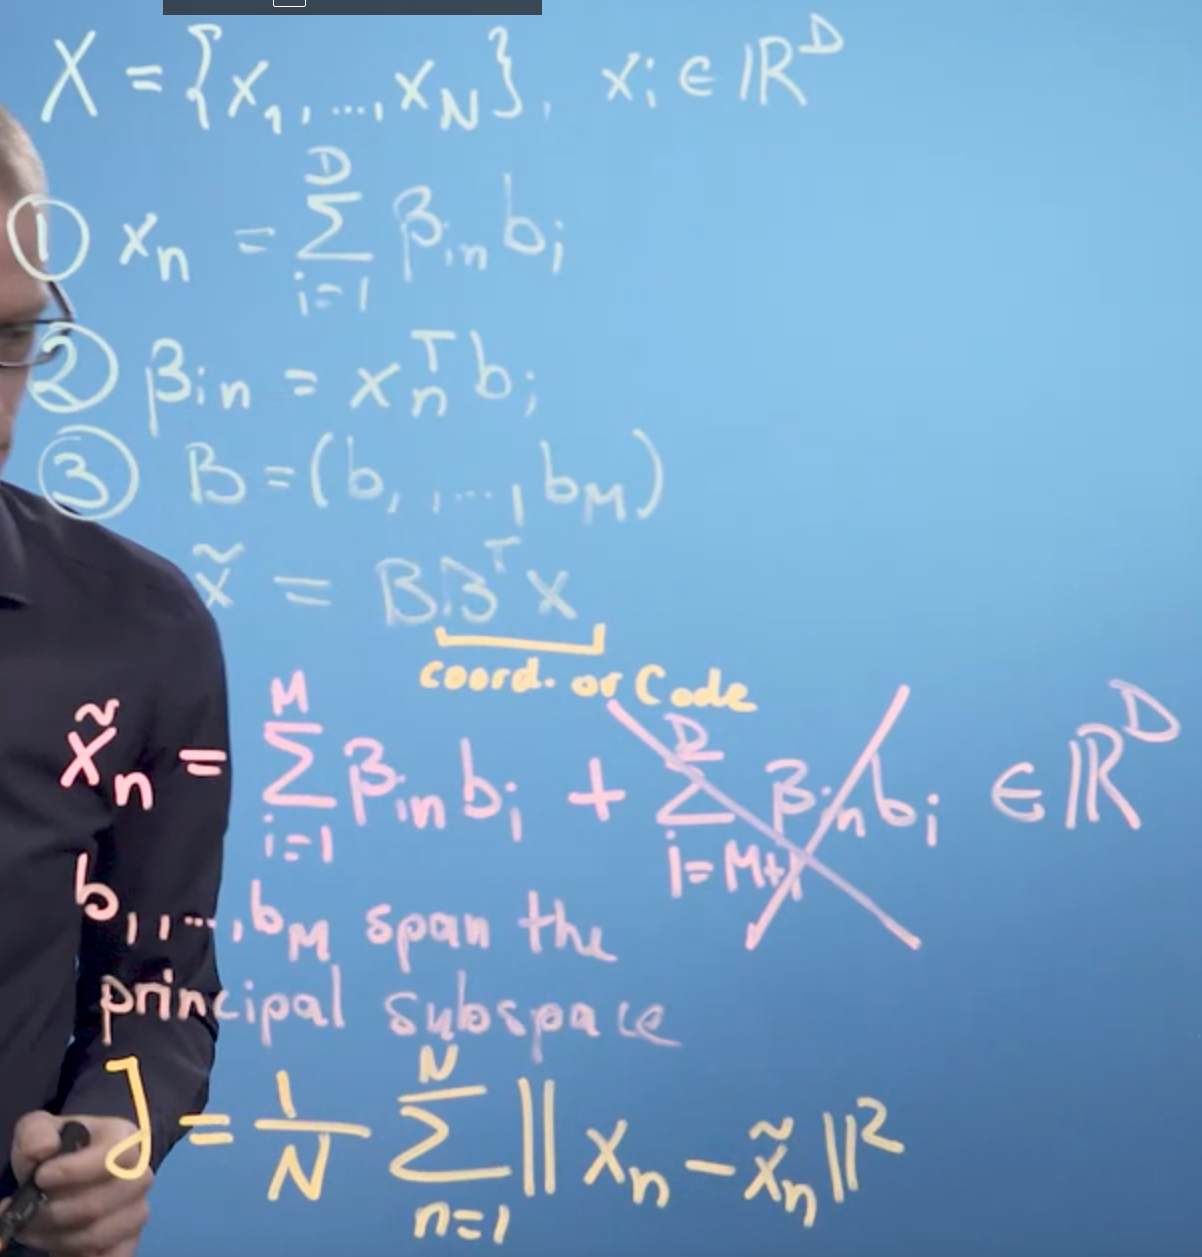 X = {x₁, ..., x_N}, xᵢ ∈ ℝᴰ
① xₙ = ∑_{i=1}^{D} βᵢₙ bᵢ
② βᵢₙ = xₙᵀ bᵢ
③ B = (b₁, ..., b_M)
x̃ = BBᵀx
coord. or Code
x̃ₙ = ∑_{i=1}^{M} βᵢₙ bᵢ + ∑_{i=M+1}^{D} βᵢₙ bᵢ ∈ ℝᴰ
b₁, ..., b_M span the
principal subspace
J = 1/N ∑_{n=1}^{N} ‖xₙ − x̃ₙ‖²